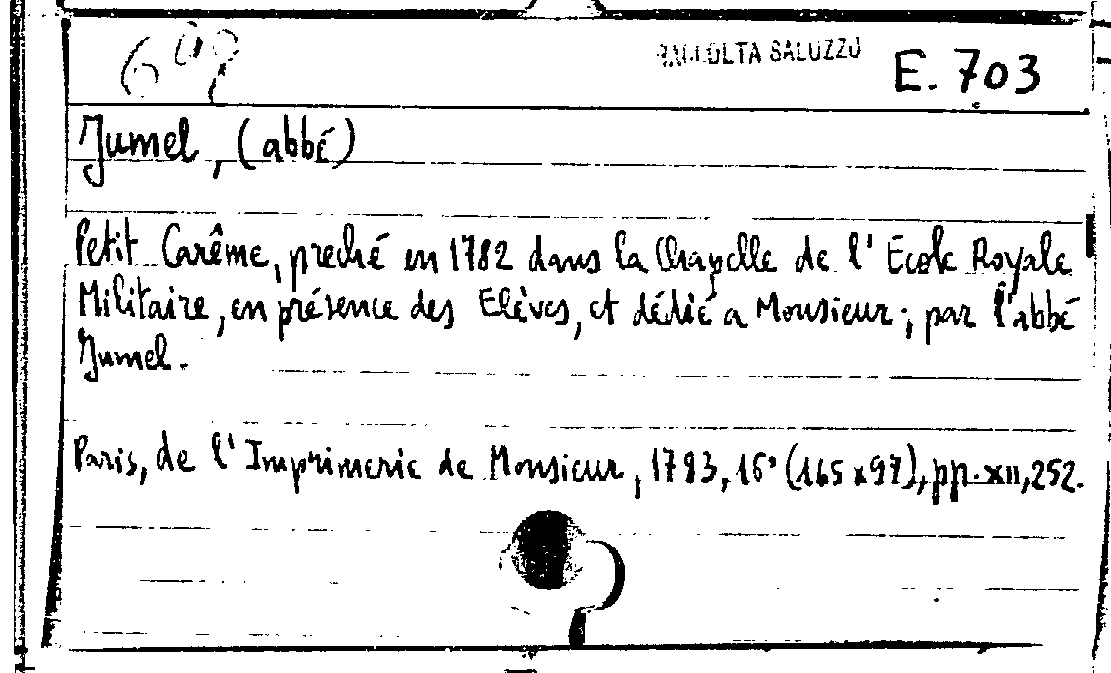 609
RACCOLTA SALUZZO
E. 703
Jumel, (abbé)
Petit Carême, preché en 1782 dans la Chapelle de l'Ecole Royale
Militaire, en présence des Elèves, et dédié a Monsieur; par l'abbé
Jumel.
Paris, de l'Imprimerie de Monsieur, 1783, 16° (165 x 97), pp. XII, 252.